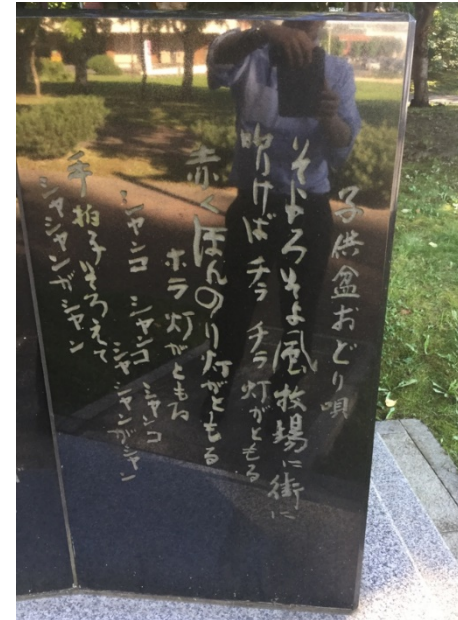 子供盆おどり唄
そよろそよ風牧場に街に
吹けばチラチラ灯がともる
赤くほんのり灯がともる
ホラ灯がともる
シャンコ シャンコ シャンコ
シャシャンがシャン
手拍子そろえて
シャシャンがシャン